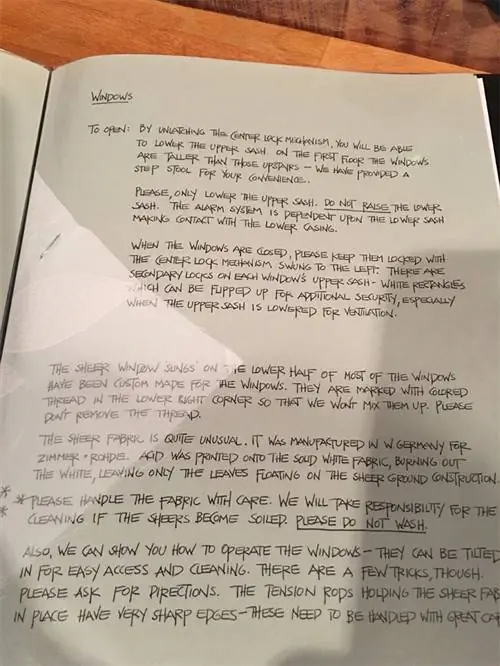 WINDOWS
TO OPEN: BY UNLATCHING THE CENTER LOCK MECHANISM, YOU WILL BE ABLE
TO LOWER THE UPPER SASH. ON THE FIRST FLOOR THE WINDOWS
ARE TALLER THAN THOSE UPSTAIRS – WE HAVE PROVIDED A
STEP STOOL FOR YOUR CONVENIENCE.
PLEASE, ONLY LOWER THE UPPER SASH. DO NOT RAISE THE LOWER
SASH. THE ALARM SYSTEM IS DEPENDENT UPON THE LOWER SASH
MAKING CONTACT WITH THE LOWER CASING.
WHEN THE WINDOWS ARE CLOSED, PLEASE KEEP THEM LOCKED WITH
THE CENTER LOCK MECHANISM SWUNG TO THE LEFT. THERE ARE
SECONDARY LOCKS ON EACH WINDOW'S UPPER SASH - WHITE RECTANGLES
WHICH CAN BE FLIPPED UP FOR ADDITIONAL SECURITY, ESPECIALLY
WHEN THE UPPER SASH IS LOWERED FOR VENTILATION.
THE SHEER WINDOW 'SLINGS' ON THE LOWER HALF OF MOST OF THE WINDOWS
HAVE BEEN CUSTOM MADE FOR THE WINDOWS. THEY ARE MARKED WITH COLORED
THREAD IN THE LOWER RIGHT CORNER SO THAT WE WON'T MIX THEM UP. PLEASE
DON'T REMOVE THE THREAD.
THE SHEER FABRIC IS QUITE UNUSUAL. IT WAS MANUFACTURED IN W. GERMANY FOR
ZIMMER + ROHDE. ACID WAS PRINTED ONTO THE SOLID WHITE FABRIC, BURNING OUT
THE WHITE, LEAVING ONLY THE LEAVES FLOATING ON THE SHEER GROUND CONSTRUCTION.
* * PLEASE HANDLE THE FABRIC WITH CARE. WE WILL TAKE RESPONSIBILITY FOR THE
* CLEANING IF THE SHEERS BECOME SOILED. PLEASE DO NOT WASH.
ALSO, WE CAN SHOW YOU HOW TO OPERATE THE WINDOWS – THEY CAN BE TILTED
IN FOR EASY ACCESS AND CLEANING. THERE ARE A FEW TRICKS, THOUGH.
PLEASE ASK FOR DIRECTIONS. THE TENSION RODS HOLDING THE SHEER FAB
IN PLACE HAVE VERY SHARP EDGES – THESE NEED TO BE HANDLED WITH GREAT CA